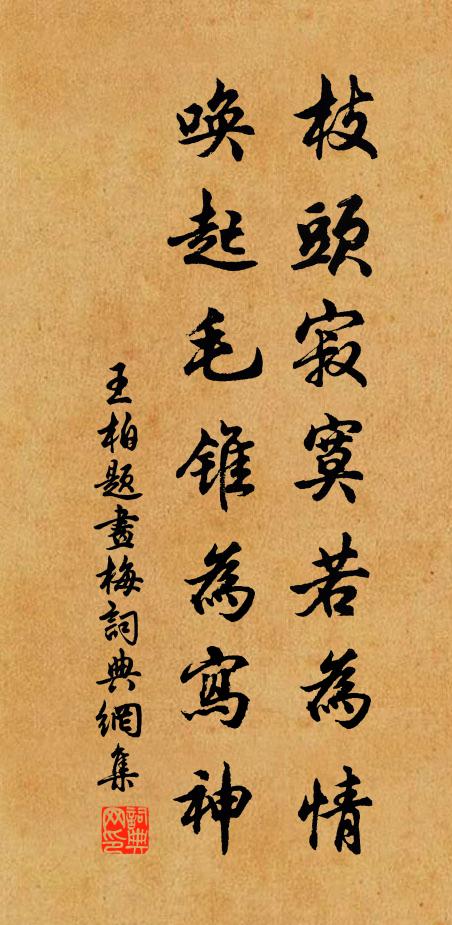 枝頭寂寞若為情
喚起毛錐為寫神
王柏題畫梅詞典網集
詞典網印